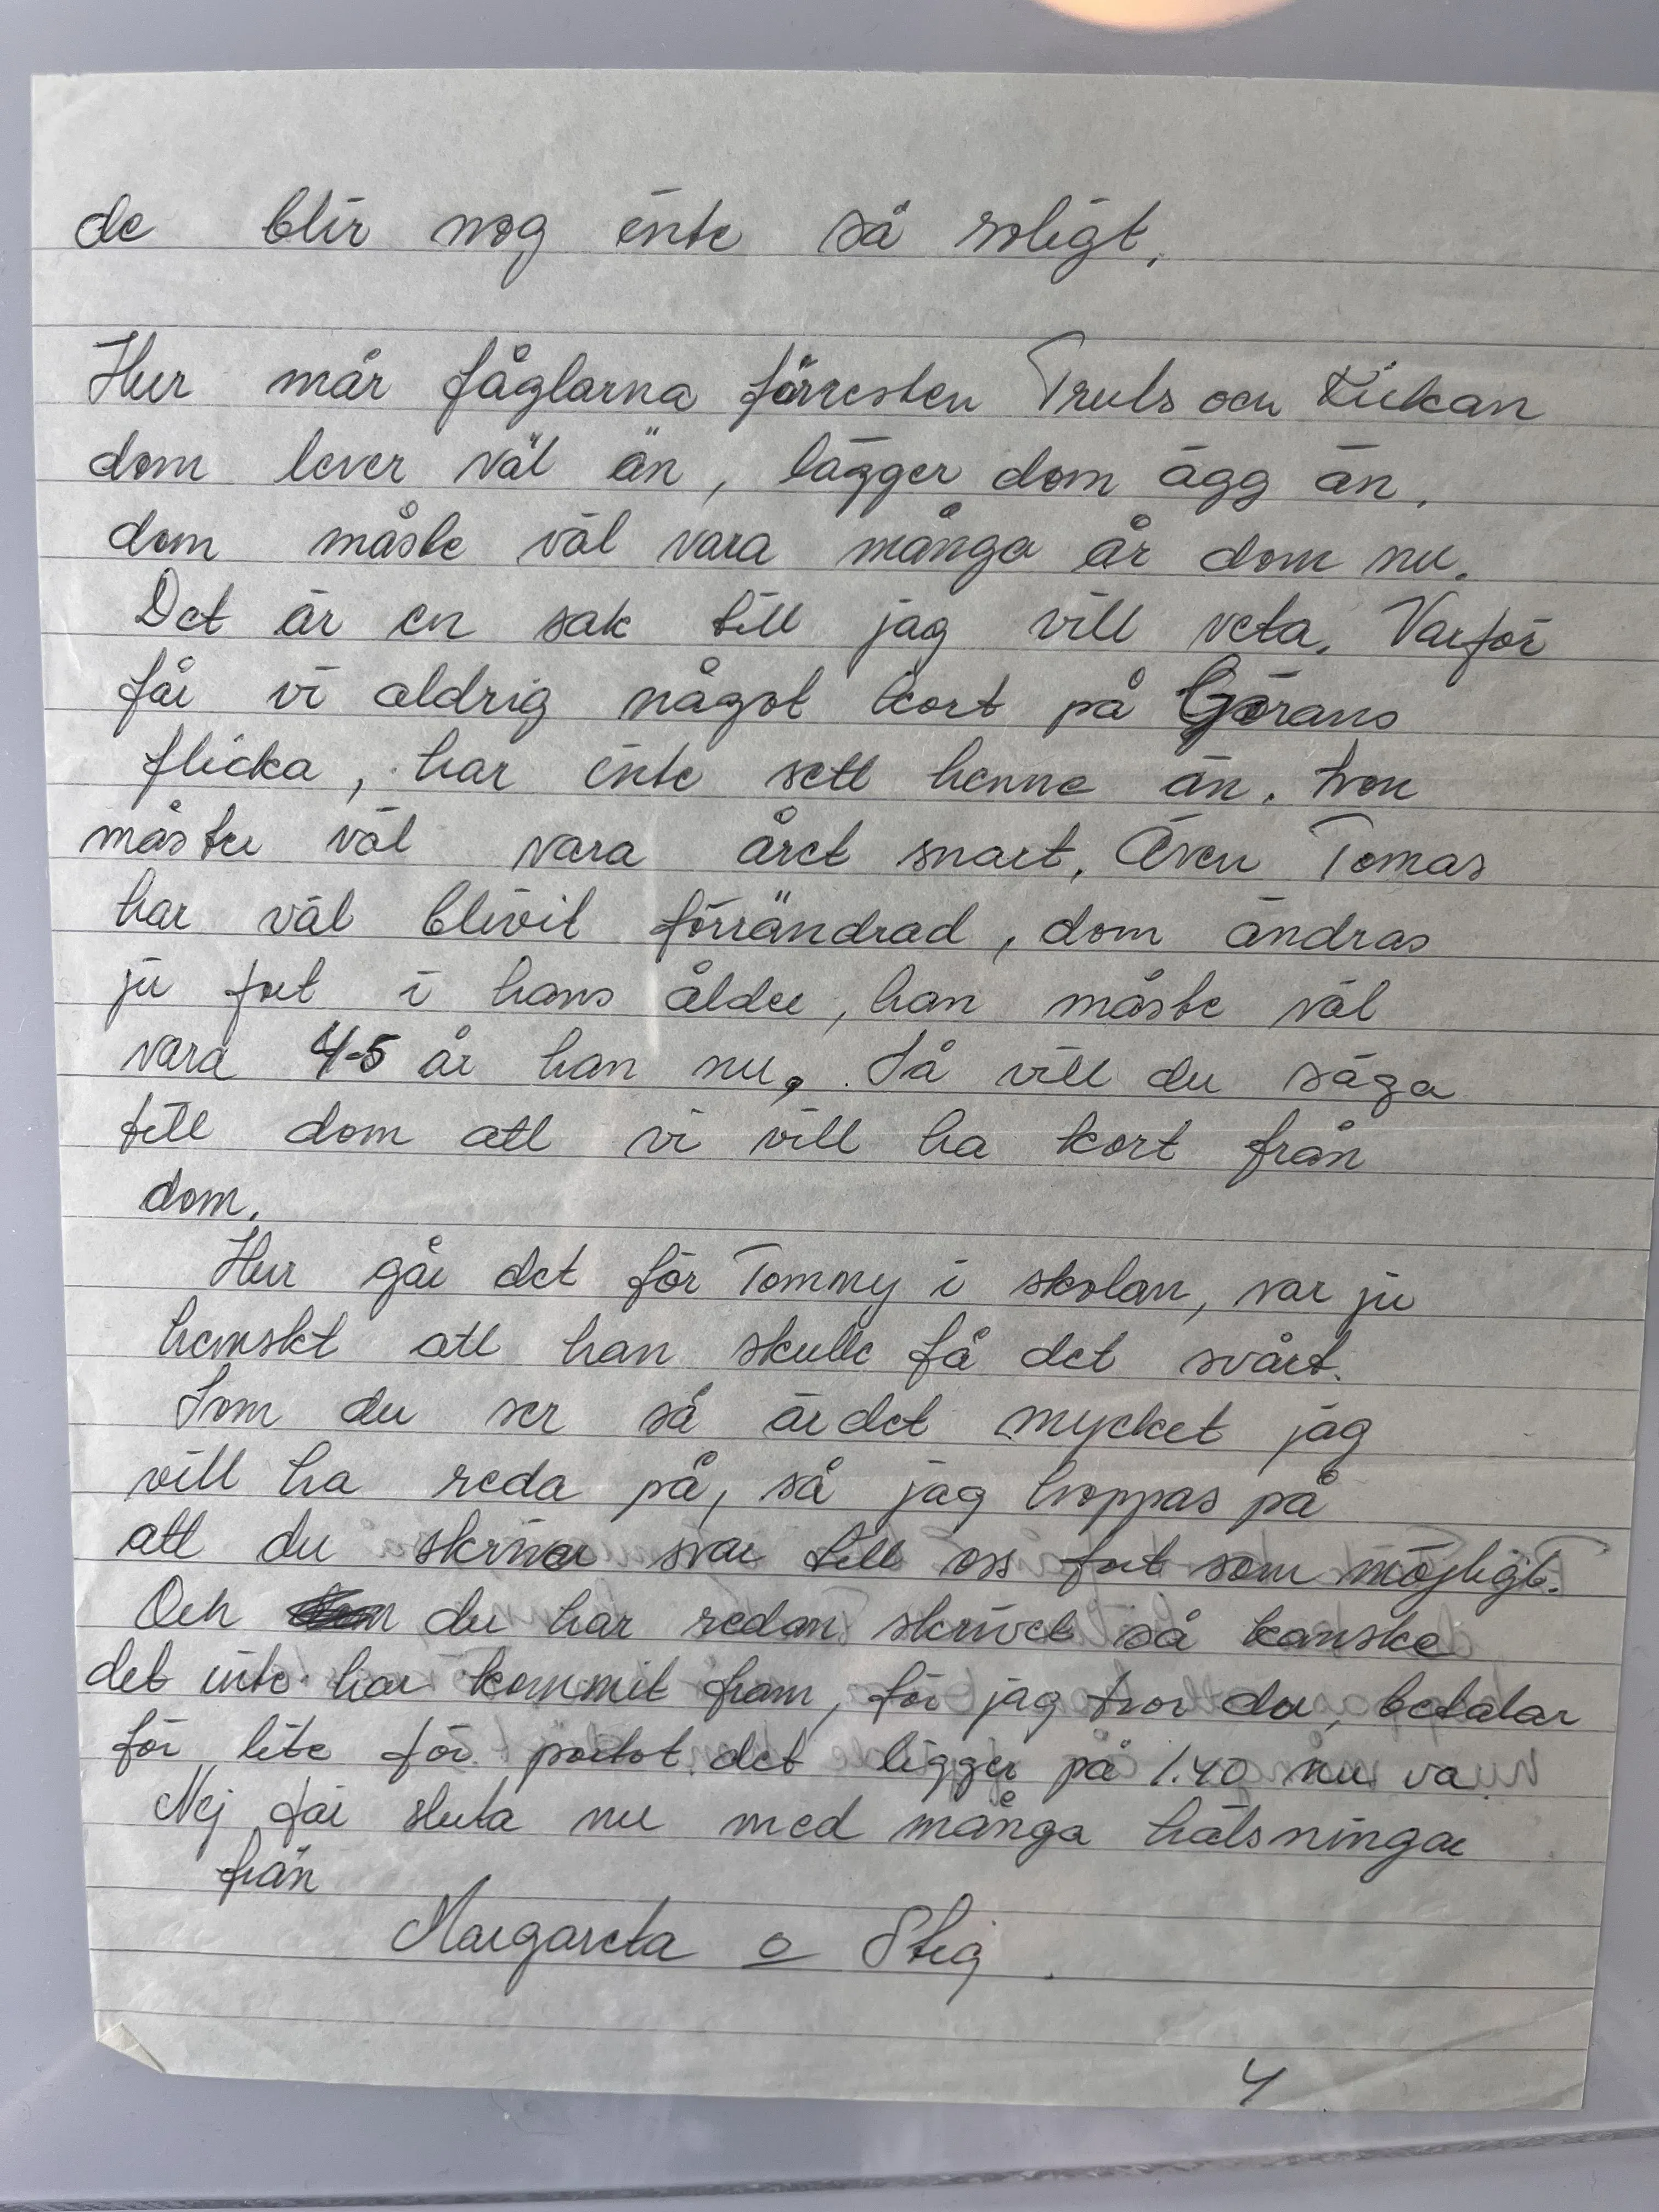 de blir nog inte så roligt.
Hur mår fåglarna förresten Truls och Kickan
dom lever väl än, lägger dom ägg än.
dom måste väl vara många år dom nu.
Det är en sak till jag vill veta. Varför
får vi aldrig något kort på Görans
flicka, har inte sett henne än. hon
måste väl vara året snart. Även Tomas
har väl blivit förrändrad, dom ändras
ju fort i hans ålder, han måste väl
vara 4-5 år han nu. Så vill du säga
till dom att vi vill ha kort från
dom.
Hur går det för Tommy i skolan, var ju
hemskt att han skulle få det svårt.
Som du ser så är det mycket jag
vill ha reda på, så jag hoppas på
att du skriver svar till oss fort som möjligt.
Och du har redan skrivet så kanske
det inte har kommit fram, för jag tror du, betalar
för lite för portot det ligger på 1.40 nu va
Nej får sluta nu med många hälsningar
från
Margareta o Stig.
4